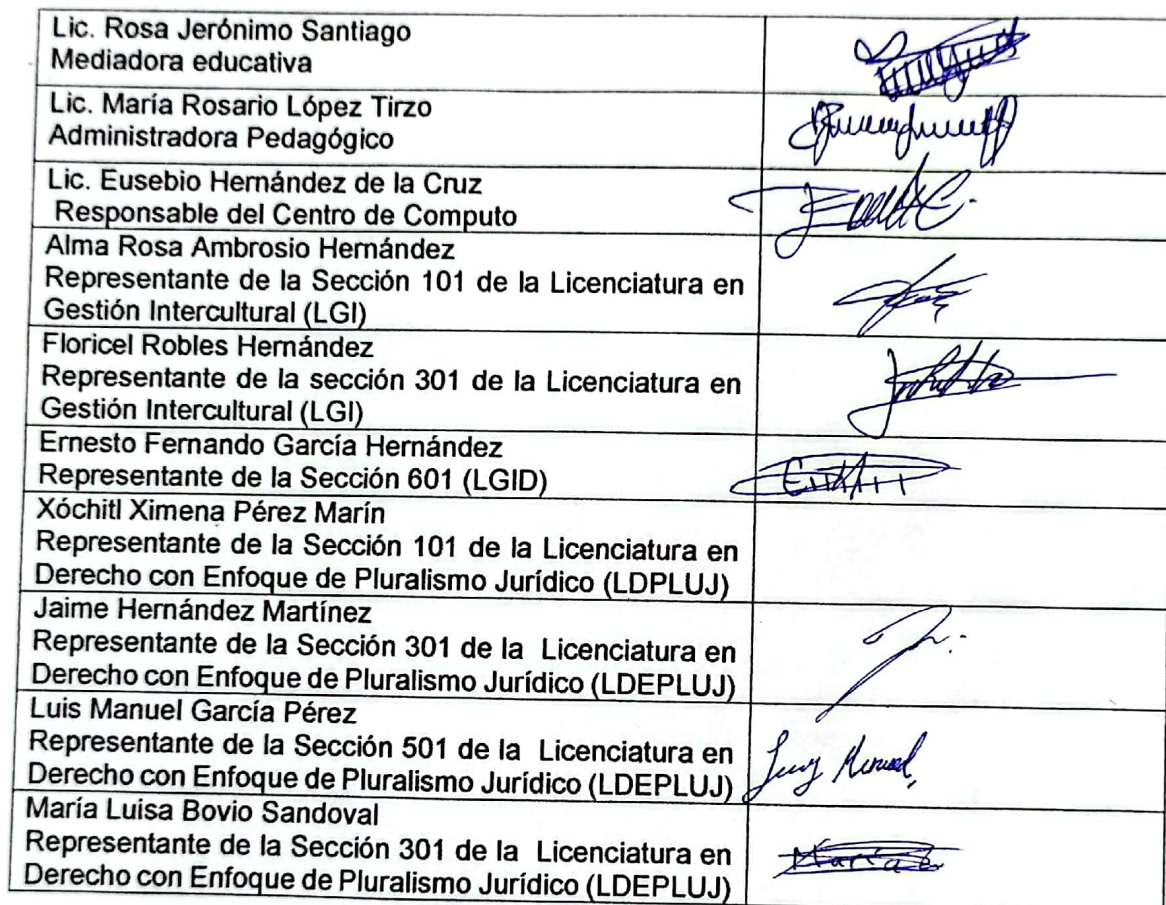 Lic. Rosa Jerónimo Santiago
Mediadora educativa
Lic. María Rosario López Tirzo
Administradora Pedagógico
Lic. Eusebio Hernández de la Cruz
Responsable del Centro de Computo
Alma Rosa Ambrosio Hernández
Representante de la Sección 101 de la Licenciatura en
Gestión Intercultural (LGI)
Floricel Robles Hernández
Representante de la sección 301 de la Licenciatura en
Gestión Intercultural (LGI)
Ernesto Fernando García Hernández
Representante de la Sección 601 (LGID)
Xóchitl Ximena Pérez Marín
Representante de la Sección 101 de la Licenciatura en
Derecho con Enfoque de Pluralismo Jurídico (LDPLUJ)
Jaime Hernández Martínez
Representante de la Sección 301 de la Licenciatura en
Derecho con Enfoque de Pluralismo Jurídico (LDEPLUJ)
Luis Manuel García Pérez
Representante de la Sección 501 de la Licenciatura en
Derecho con Enfoque de Pluralismo Jurídico (LDEPLUJ)
María Luisa Bovio Sandoval
Representante de la Sección 301 de la Licenciatura en
Derecho con Enfoque de Pluralismo Jurídico (LDEPLUJ)